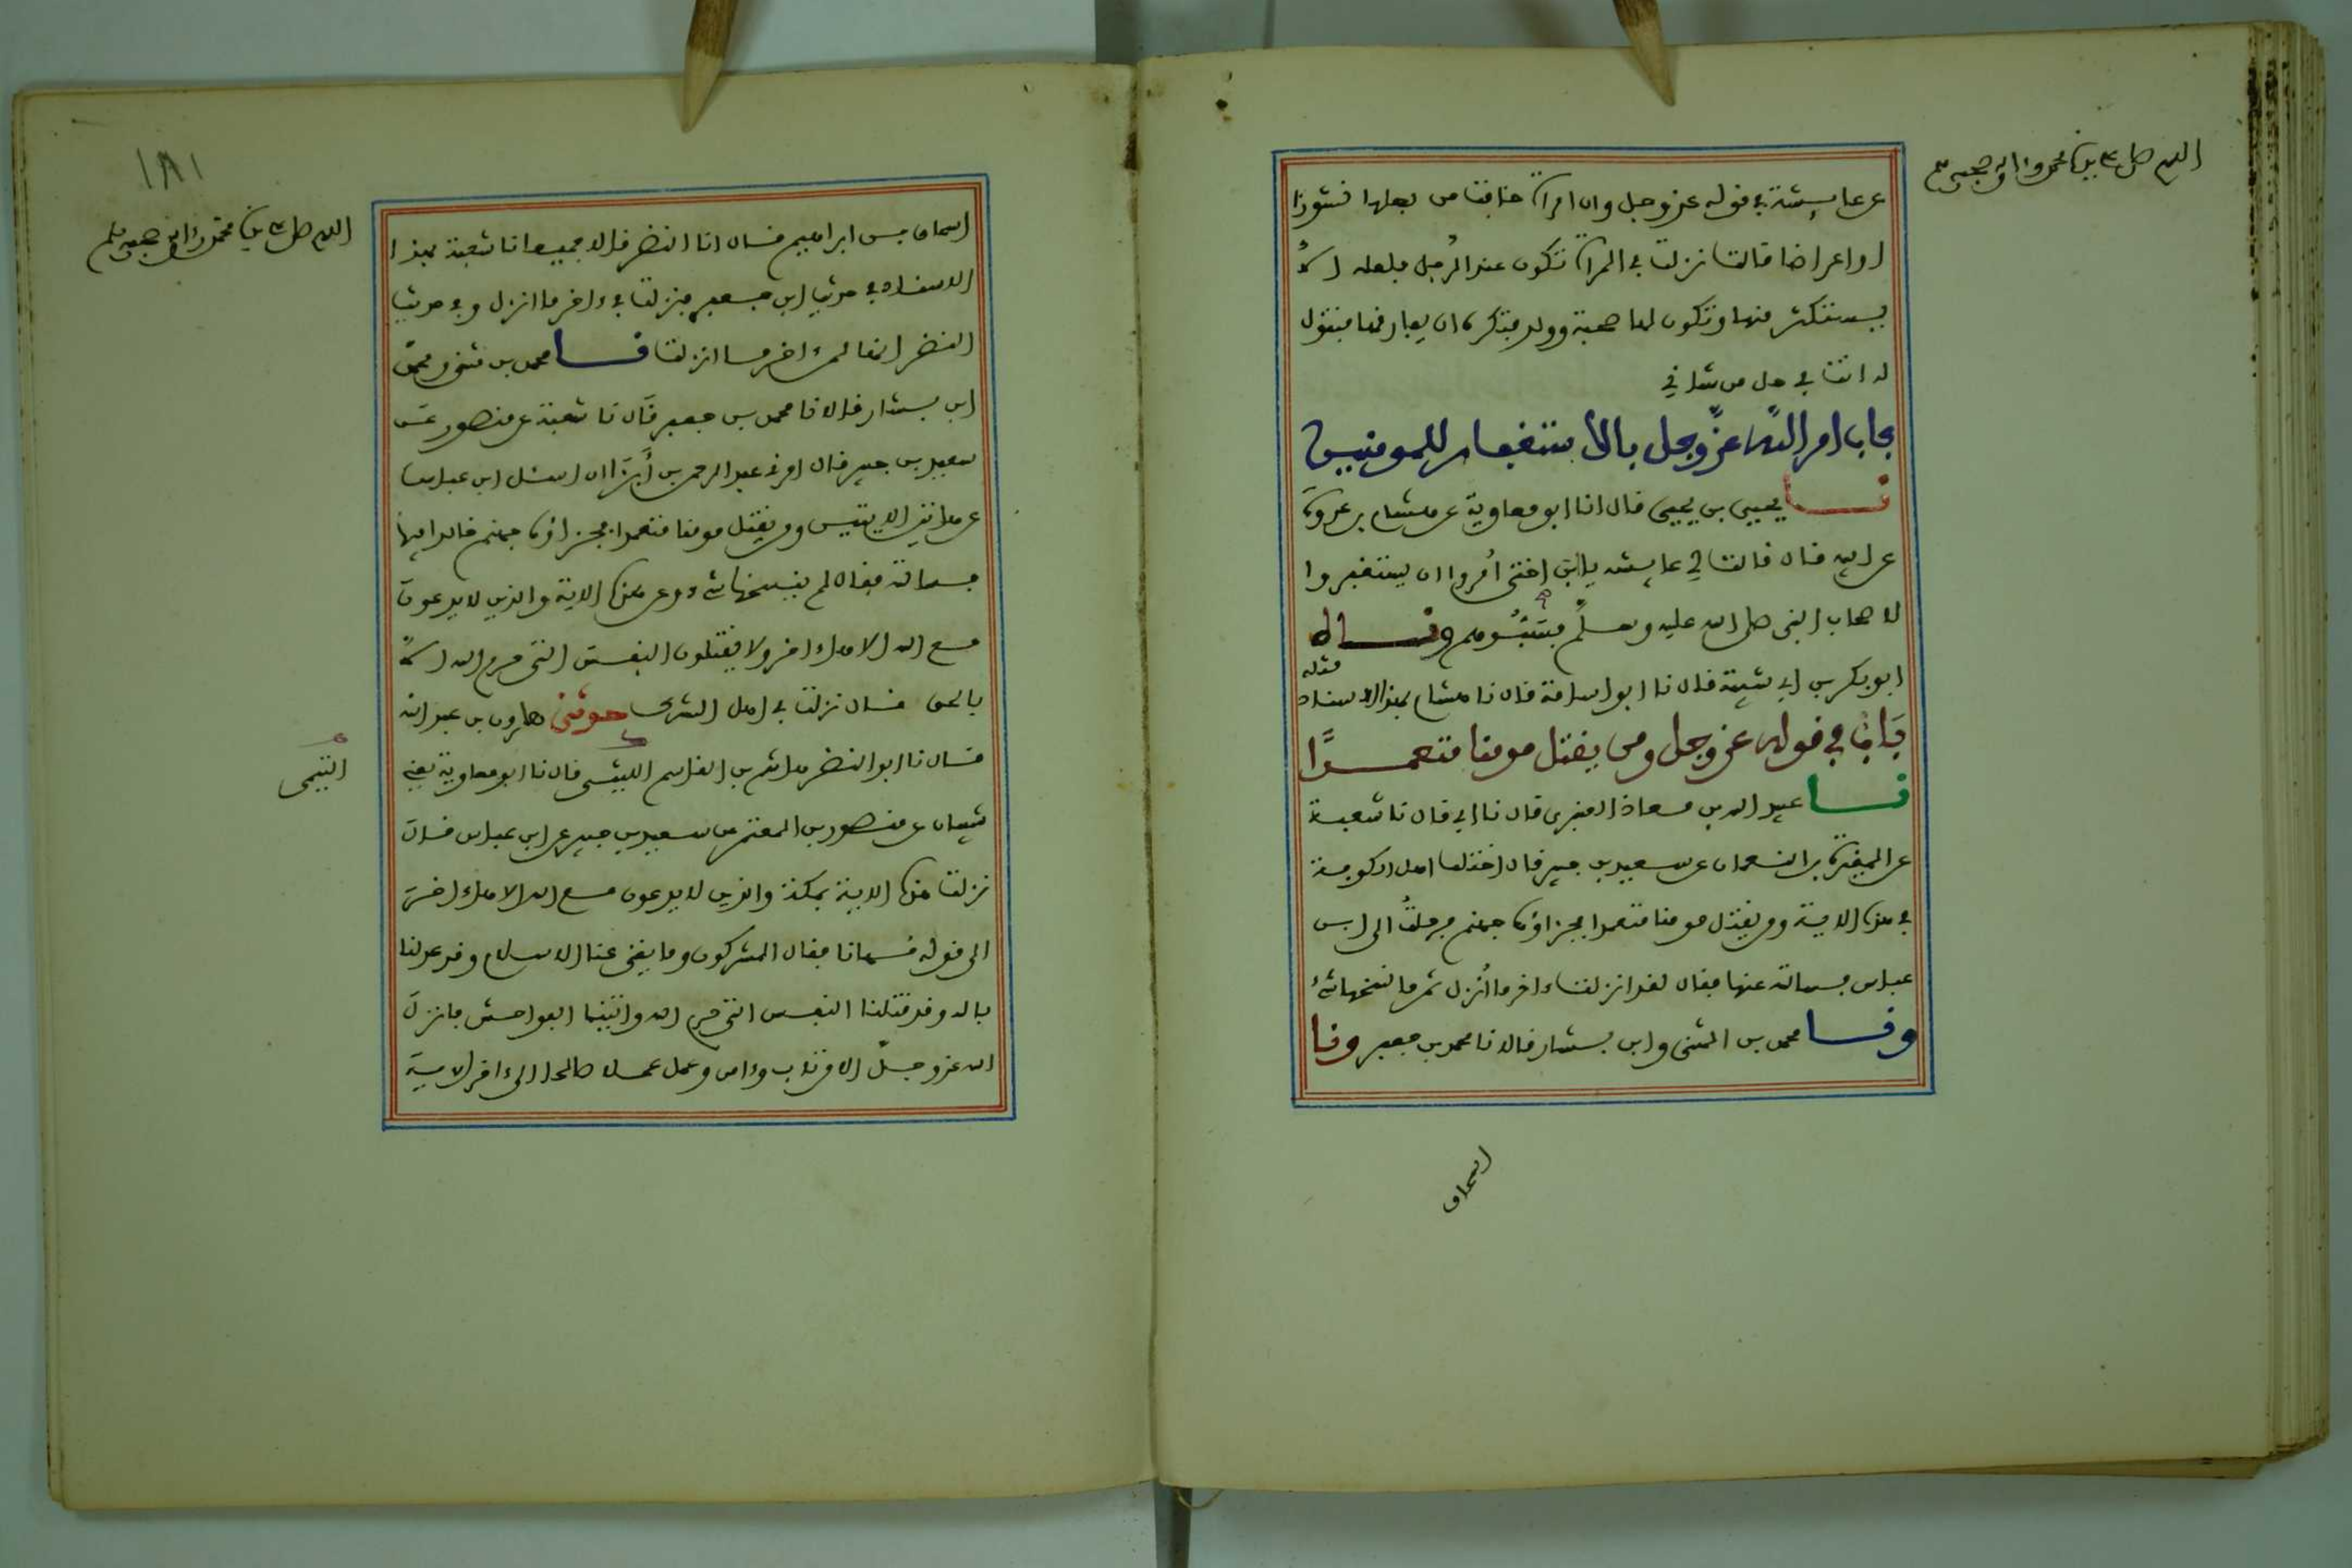 اللهم صل على سيدنا محمد وءاله وصحبه وسلم
عن عايشة في قوله عز وجل وان امراة خافت من بعلها نشوزا
او اعراضا قالت نزلت في المراة تكون عند الرجل فلعله الا
يستكثر منها وتكون لها صحبة وولد فتكره ان يفارقها فتقول
له انت في حل من شاني
باب امر الله عز وجل بالاستغفار للمومنين
نا يحيى بن يحيى قال انا ابو معاوية عن هشام بن عروة
عن ابيه قال قالت لي عايشة يا ابن اختي أمروا ان يستغفروا
لاصحاب النبي صلى الله عليه وسلم فسبوهم ونا
ابو بكر بن ابي شيبة قال نا ابو اسامة قال نا هشام بهذا الاسناد مثله
باب في قوله عز وجل ومن يقتل مومنا متعمدا
نا عبيد الله بن معاذ العنبري قال نا ابي قال نا شعبة
عن المغيرة بن النعمان عن سعيد بن جبير قال اختلف اهل الكوفة
في هذه الاية ومن يقتل مومنا متعمدا فجزاؤه جهنم فرحلت الى ابن
عباس فسالته عنها فقال لقد انزلت ءاخر ما أنزل ثم ما نسخها شيء
ونا محمد بن المثنى وابن بشار قالا نا محمد بن جعفر ونا
اسحاق
١٨١
اللهم صل على سيدنا محمد وءاله وصحبه وسلم
اسحاق بن ابراهيم قال انا النضر قالا جميعا نا شعبة بهذا
الاسناد في حديث ابن جعفر نزلت في ءاخر ما انزل وفي حديث
النضر انها لمن ءاخر ما انزلت نا محمد بن مثنى ومحمد
ابن بشار قالا نا محمد بن جعفر قال نا شعبة عن منصور عن
سعيد بن جبير قال امرني عبد الرحمن بن أبزا ان اسئل ابن عباس
عن هاتين الايتين ومن يقتل مومنا متعمدا فجزاؤه جهنم خالدا فيها
فسالته فقال لم ينسخها شيء وعن هذه الاية والذين لا يدعون
مع الله الاها ءاخر ولا يقتلون النفس التي حرم الله الا
بالحق قال نزلت في اهل الشرك حدثني هارون بن عبد الله
قال نا ابو النضر هاشم بن القاسم الليثي قال نا ابو معاوية يعني
التيمي
شيبان عن منصور بن المعتمر عن سعيد بن جبير عن ابن عباس قال
نزلت هذه الاية بمكة والذين لا يدعون مع الله الاها ءاخر
الى قوله مهانا فقال المشركون وما يغني عنا الاسلام وقد عدلنا
بالله وقد قتلنا النفس التي حرم الله واتينا الفواحش فانزل
الله عز وجل الا من تاب وءامن وعمل عملا صالحا الى ءاخر الاية